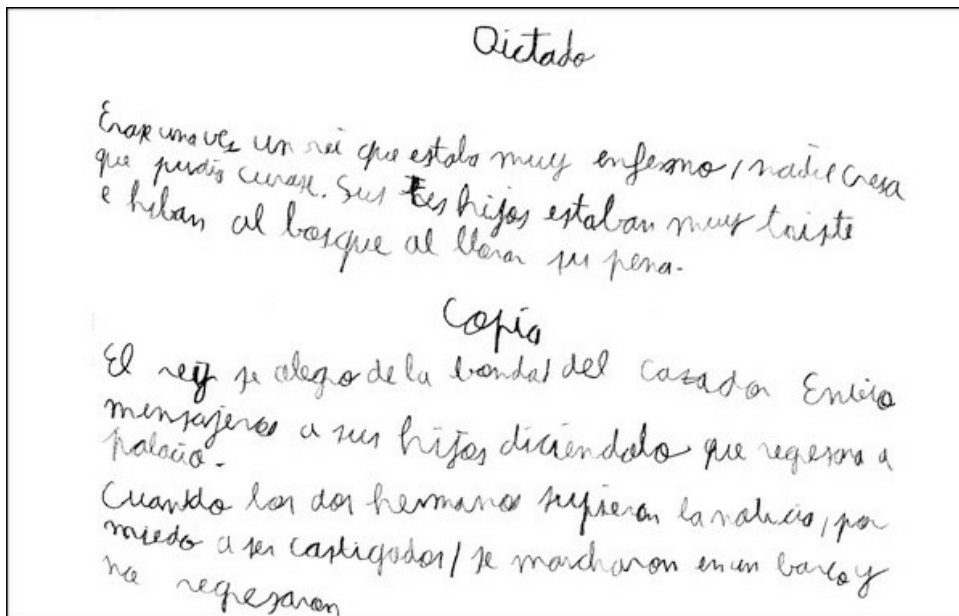 Dictado
Erase una vez un rei que estaba muy enfermo, nadie creia
que pudia curase. Sus tes hijos estaban muy triste
e hiban al bosque al llorar su pena.
Copia
El rey se alegro de la bondad del cazador Envio
mensajeros a sus hijos diciendolo que regesora a
palacio.
Cuando los dos hermanos supieron la noticia, por
miedo a ser castigados, se marcharon en un barco y
no regresaron